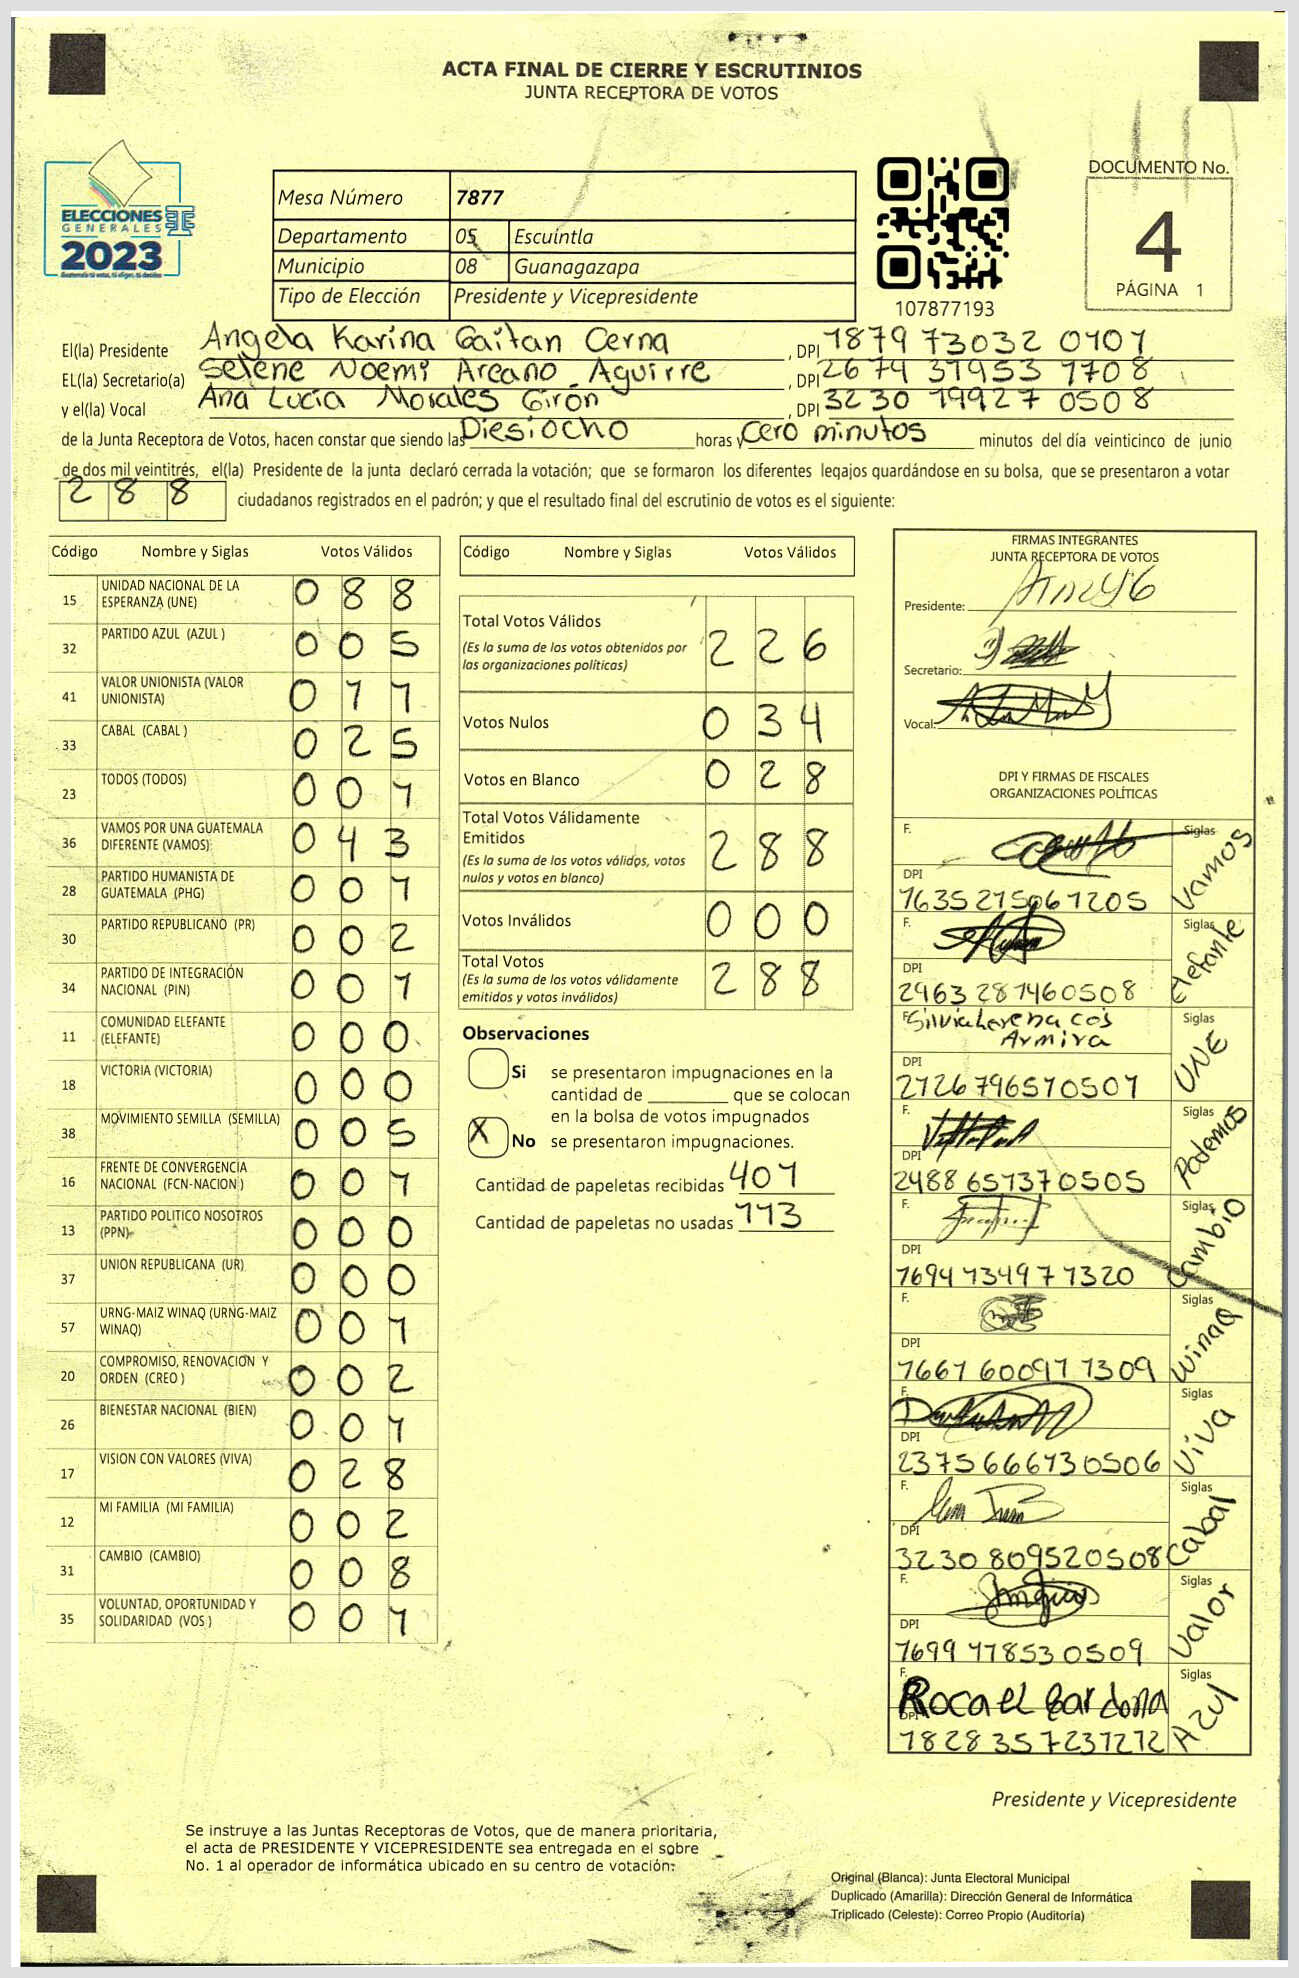 ACTA FINAL DE CIERRE Y ESCRUTINIOS
JUNTA RECEPTORA DE VOTOS
ELECCIONES
GENERALES
2023
Guatemala tú votas, tú eliges, tú decides
Mesa Número 7877
Departamento 05 Escuintla
Municipio 08 Guanagazapa
Tipo de Elección Presidente y Vicepresidente
107877193
DOCUMENTO No.
4
PÁGINA 1
El(la) Presidente Angela Karina Gaitan Cerna, DPI 1879 73032 0101
EL(la) Secretario(a) Selene Noemi Arcano Aguirre, DPI 2674 31953 1108
y el(la) Vocal Ana Lucia Morales Girón, DPI 3230 19927 0508
de la Junta Receptora de Votos, hacen constar que siendo las Diesiocho horas y Cero minutos minutos del día veinticinco de junio
de dos mil veintitrés, el(la) Presidente de la junta declaró cerrada la votación; que se formaron los diferentes legajos guardándose en su bolsa, que se presentaron a votar
288 ciudadanos registrados en el padrón; y que el resultado final del escrutinio de votos es el siguiente:
Código Nombre y Siglas Votos Válidos
15 UNIDAD NACIONAL DE LA ESPERANZA (UNE) 088
32 PARTIDO AZUL (AZUL ) 005
41 VALOR UNIONISTA (VALOR UNIONISTA) 011
33 CABAL (CABAL ) 025
23 TODOS (TODOS) 001
36 VAMOS POR UNA GUATEMALA DIFERENTE (VAMOS) 043
28 PARTIDO HUMANISTA DE GUATEMALA (PHG) 001
30 PARTIDO REPUBLICANO (PR) 002
34 PARTIDO DE INTEGRACIÓN NACIONAL (PIN) 001
11 COMUNIDAD ELEFANTE (ELEFANTE) 000
18 VICTORIA (VICTORIA) 000
38 MOVIMIENTO SEMILLA (SEMILLA) 005
16 FRENTE DE CONVERGENCIA NACIONAL (FCN-NACION ) 001
13 PARTIDO POLITICO NOSOTROS (PPN) 000
37 UNION REPUBLICANA (UR) 000
57 URNG-MAIZ WINAQ (URNG-MAIZ WINAQ) 001
20 COMPROMISO, RENOVACION Y ORDEN (CREO ) 002
26 BIENESTAR NACIONAL (BIEN) 001
17 VISION CON VALORES (VIVA) 028
12 MI FAMILIA (MI FAMILIA) 002
31 CAMBIO (CAMBIO) 008
35 VOLUNTAD, OPORTUNIDAD Y SOLIDARIDAD (VOS ) 001
Código Nombre y Siglas Votos Válidos
Total Votos Válidos 226
(Es la suma de los votos obtenidos por
las organizaciones políticas)
Votos Nulos 034
Votos en Blanco 028
Total Votos Válidamente
Emitidos 288
(Es la suma de los votos válidos, votos
nulos y votos en blanco)
Votos Inválidos 000
Total Votos 288
(Es la suma de los votos válidamente
emitidos y votos inválidos)
Observaciones
Si se presentaron impugnaciones en la
cantidad de ________ que se colocan
en la bolsa de votos impugnados
X No se presentaron impugnaciones.
Cantidad de papeletas recibidas 401
Cantidad de papeletas no usadas 113
FIRMAS INTEGRANTES
JUNTA RECEPTORA DE VOTOS
Presidente:
Secretario:
Vocal:
DPI Y FIRMAS DE FISCALES
ORGANIZACIONES POLÍTICAS
F. Siglas Vamos
DPI
1635 215061205
F. Siglas Elefante
DPI
2963 281460508
F. Silvia Lorena Cos Siglas UNE
Armira
DPI
2126 796510501
F. Siglas Podemos
DPI
2488 651370505
F. Siglas Cambio
DPI
1694 13497 1320
F. Siglas Winaq
DPI
1661 60091 1309
F. Siglas Viva
DPI
2375 666130506
F. Siglas Cabal
DPI
3230 809520508
F. Siglas Valor
DPI
1699 118530509
F. Rocael Cardona Siglas Azul
DPI
1828 357231212
Presidente y Vicepresidente
Se instruye a las Juntas Receptoras de Votos, que de manera prioritaria,
el acta de PRESIDENTE Y VICEPRESIDENTE sea entregada en el sobre
No. 1 al operador de informática ubicado en su centro de votación.
Original (Blanca): Junta Electoral Municipal
Duplicado (Amarilla): Dirección General de Informática
Triplicado (Celeste): Correo Propio (Auditoría)